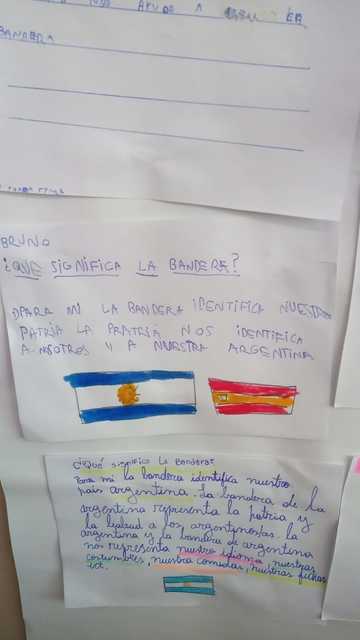 AYUDE A
BANDERA
BRUNO
¿QUE SIGNIFICA LA BANDERA?
PARA MI LA BANDERA IDENTIFICA NUESTRA
PATRIA LA PRATRIA NOS IDENTIFICA
A NSOTROS Y A NUESTRA ARGENTINA
¿Qué significa la Bandera?
Para mi la bandera identifica nuestro
país argentina. La bandera de la
argentina representa la patria y
la lealtad a los argentinos/as. la
argentina y la bandera de argentina
nos representa nuestro idioma, nuestras
costumbres, nuestra comidas, nuestras fechas